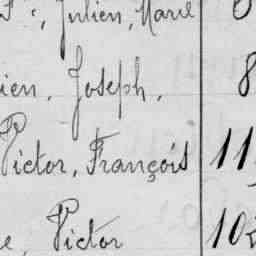 Julien, Marie
Joseph, 8
Victor, François 11
Victor 10